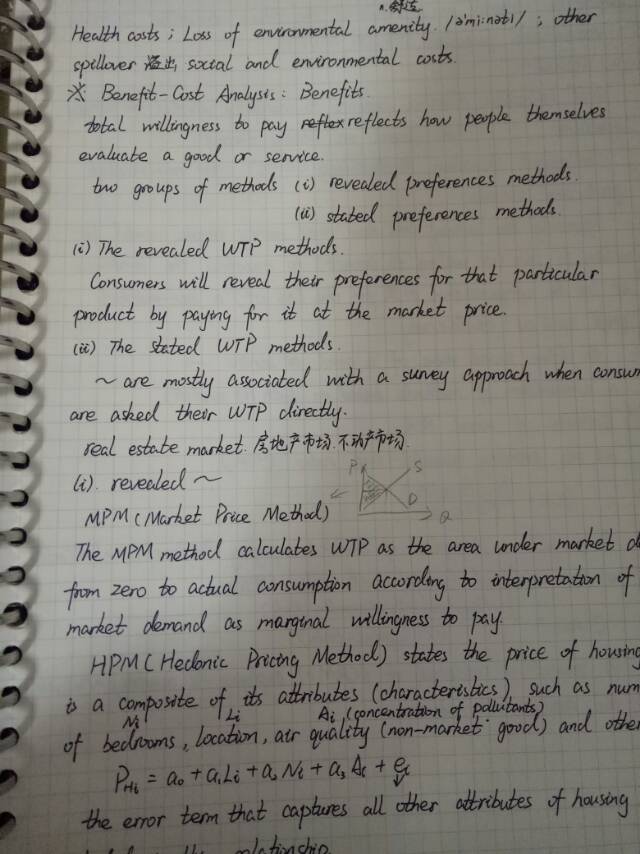 n. 舒适
Health costs; Loss of environmental amenity. /ə'mi:nəti/; other
spillover 溢出, social and environmental costs.
※ Benefit-Cost Analysis: Benefits.
total willingness to pay reflex reflects how people themselves
evaluate a good or service.
two groups of methods (i) revealed preferences methods.
(ii) stated preferences methods.
(i) The revealed WTP methods.
Consumers will reveal their preferences for that particular
product by paying for it at the market price.
(ii) The stated WTP methods.
~ are mostly associated with a survey approach when consum
are asked their WTP directly.
real estate market. 房地产市场. 不动产市场.
(i). revealed ~
P S
MPM (Market Price Method) D Q
The MPM method calculates WTP as the area under market d
from zero to actual consumption according to interpretation of
market demand as marginal willingness to pay.
HPM (Hedonic Pricing Method) states the price of housing
is a composite of its attributes (characteristics), such as num
Ni Li Ai (concentration of pollutants)
of bedrooms, location, air quality (non-market good) and other
PHi = a0 + a1Li + a2Ni + a3Ai + ei
the error term that captures all other attributes of housing
relationship.